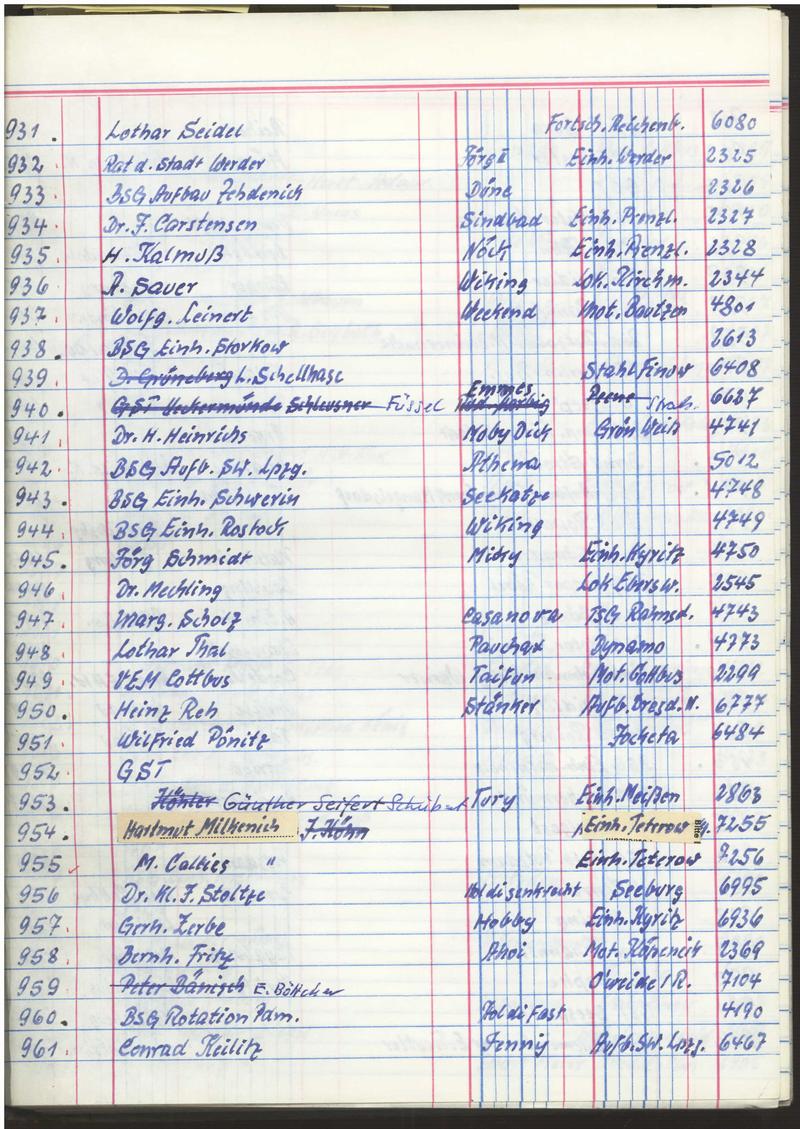 931. Lothar Seidel Fortsch. Reichenb. 6080
932. Rat d. Stadt Werder Jörg II Einh. Werder 2325
933. BSG Aufbau Zehdenick Düne 2326
934. Dr. F. Carstensen Sindbad Einh. Prenzl. 2327
935. H. Kalmuß Nöck Einh. Prenzl. 2328
936. R. Sauer Wiking Lok. Kirchm. 2344
937. Wolfg. Leinert Weekend Mot. Bautzen 4801
938. BSG Einh. Storkow 2613
939. D. Grüneberg L. Schellhase Stahl Finow 6408
940. GST Ueckermünde Schleusner Füssel Emmes Peene Stah. 6627
941. Dr. H. Heinrichs Moby Dick Grün Weiß 4741
942. BSG Aufb. SW. Lpzg. Athena 5012
943. BSG Einh. Schwerin Seekatze 4748
944. BSG Einh. Rostock Wiking 4749
945. Jörg Schmidt Micky Einh. Kyritz 4750
946. Dr. Mechling Lok Ebersw. 2545
947. Marg. Scholz Casanova TSG Rahnsd. 4743
948. Lothar Thal Dynamo 4273
949. VEM Cottbus Taifun Mot. Cottbus 2299
950. Heinz Reh Stänker Aufb. Dresd. N. 6777
951. Wilfried Pönitz Jocketa 6484
952. GST
953. Köhler Günther Seifert Tury Einh. Meißen 2863
954. Hartmut Milkenich J. Köhn Einh. Teterow 7255
955. M. Callies " Einh. Teterow 7256
956 Dr. Kl. F. Stoltze Seeburg 6995
957. Gerh. Zerbe Hobby Einh. Kyritz 6936
958. Bernh. Fritz Ahoi Mot. Köpenick 2369
959 Peter Bänisch E. Böttcher O'weide / R. 7104
960. BSG Rotation Pdm. Holdi Fast 4190
961. Conrad Keilitz Jenny Aufb. SW. Lpzg. 6467